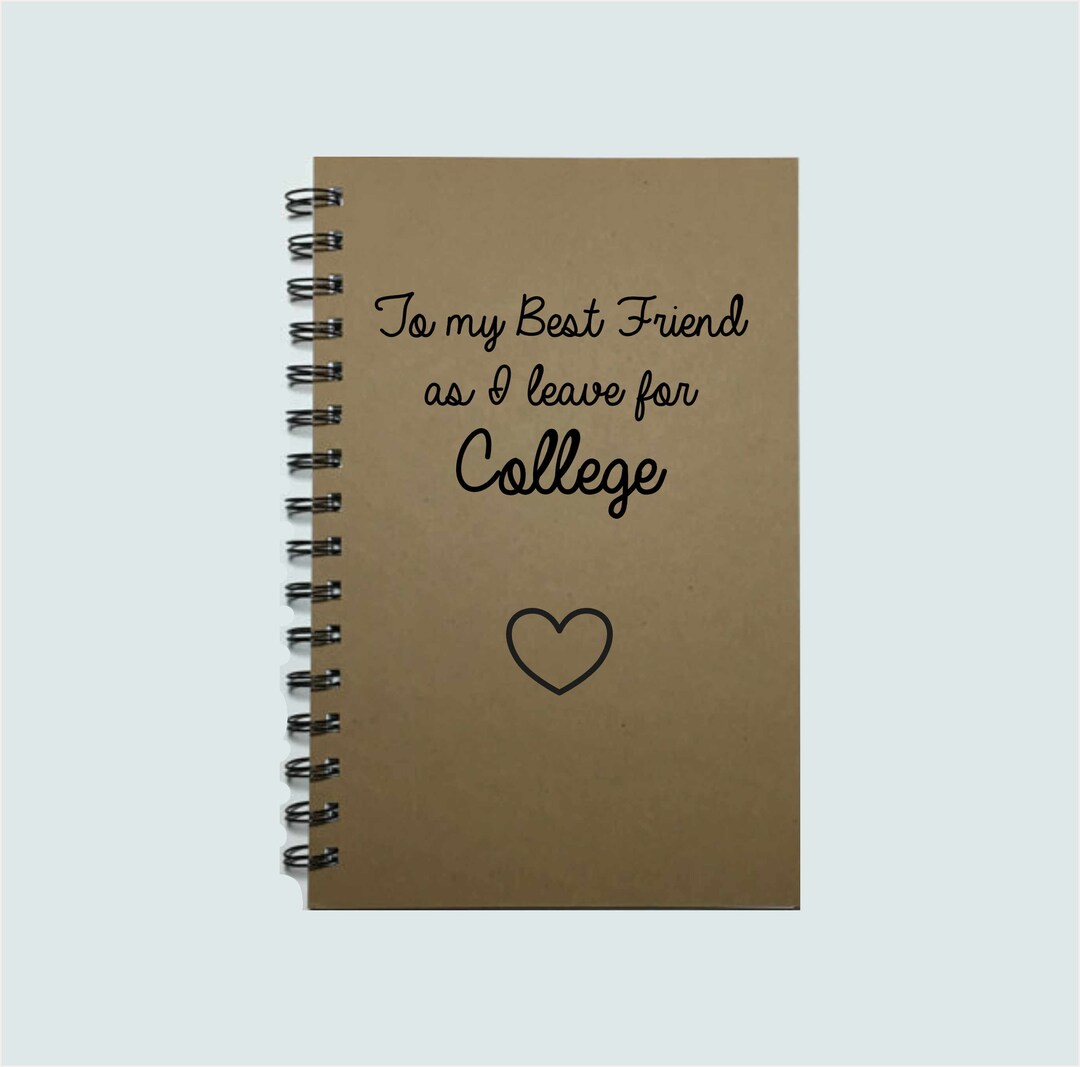 To my Best Friend
as I leave for
College